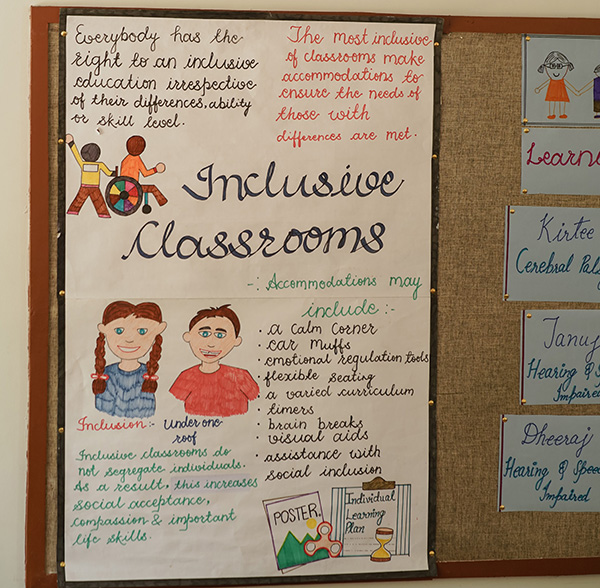 Everybody has the
right to an inclusive
education irrespective
of their differences, ability
or skill level.
The most inclusive
of classrooms make
accommodations to
ensure the needs of
those with
differences are met.
Inclusive
Classrooms
-: Accommodations may
include :-
· a calm corner
· ear muffs
· emotional regulation tools
· flexible seating
· a varied curriculum
· timers
· brain breaks
· visual aids
· assistance with
social inclusion
Inclusion:- Under one-
roof
Inclusive classrooms do
not segregate individuals.
As a result, this increases
social acceptance,
compassion & important
life skills.
POSTER.
Individual
Learning
Plan
Learn
Kirtee
Cerebral Pal
Tanuj
Hearing & S
Impaired
Dheeraj
Hearing & Speec
Impaired